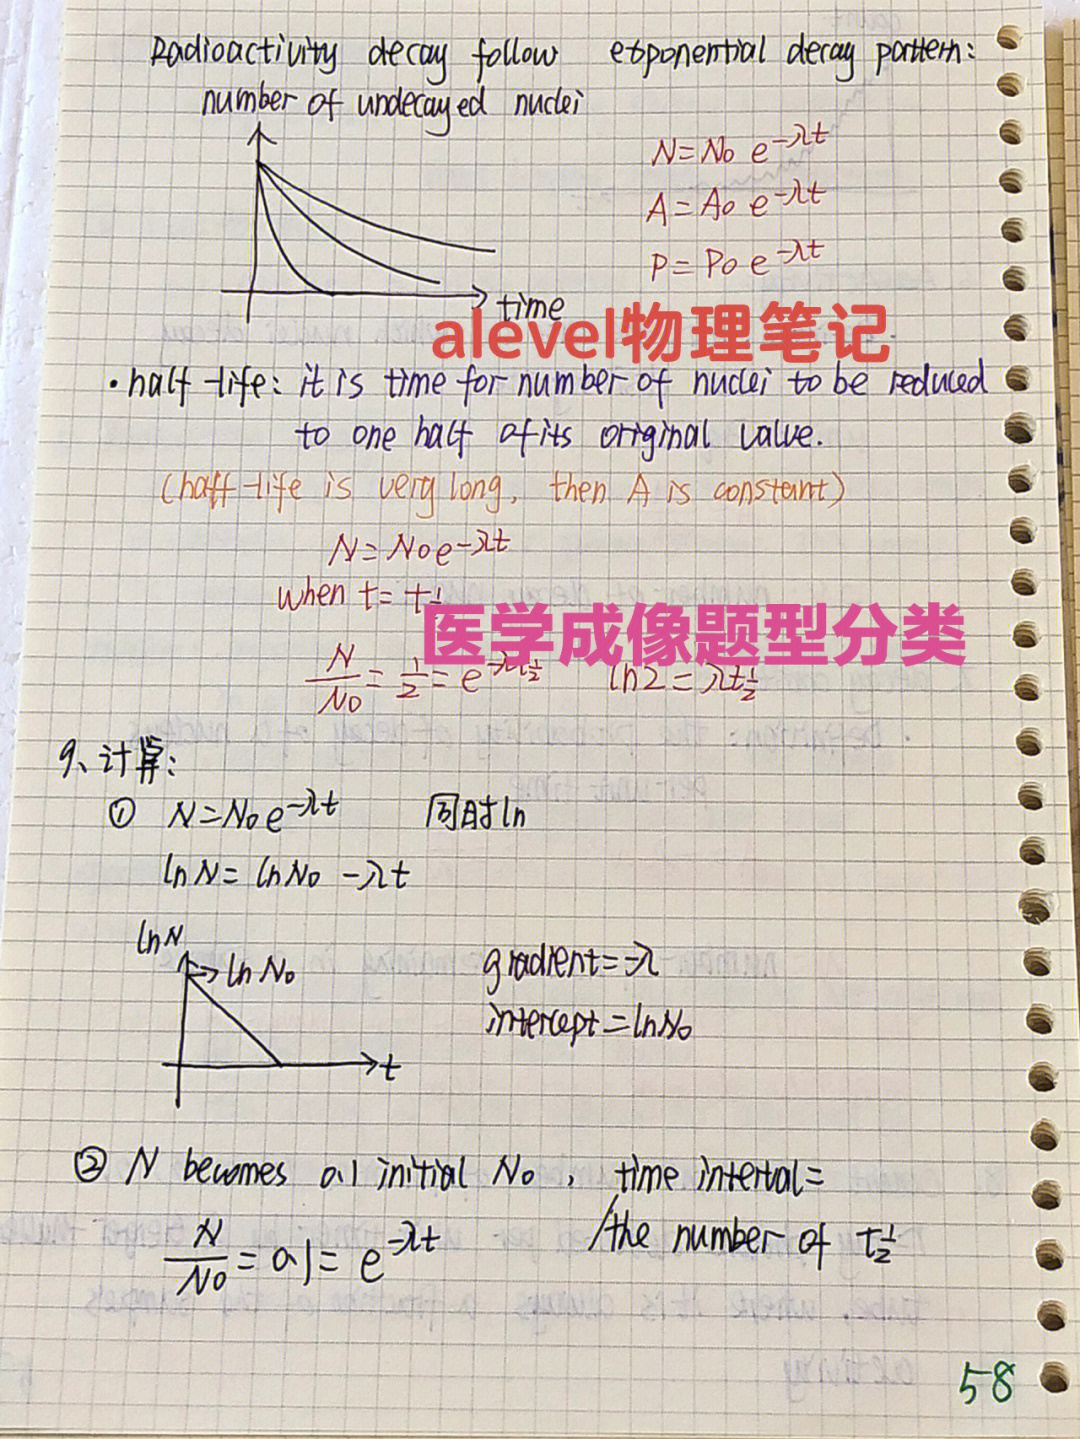 Radioactivity decay follow exponential decay pattern:
number of undecayed nuclei
N=N₀ e^-λt
A=A₀ e^-λt
P=P₀ e^-λt
time
alevel物理笔记
·half-life: it is time for number of nuclei to be reduced
to one half of its original value.
(half-life is very long, then A is constant)
N=N₀e^-λt
when t=t½
医学成像题型分类
N/N₀=1/2=e^-λt½ ln2=λt½
9、计算:
① N=N₀e^-λt 同时ln
lnN=lnN₀-λt
lnN
→lnN₀
gradient=-λ
intercept=lnN₀
t
② N becomes 0.1 initial N₀, time interval=
/the number of t½
N/N₀=0.1=e^-λt
58